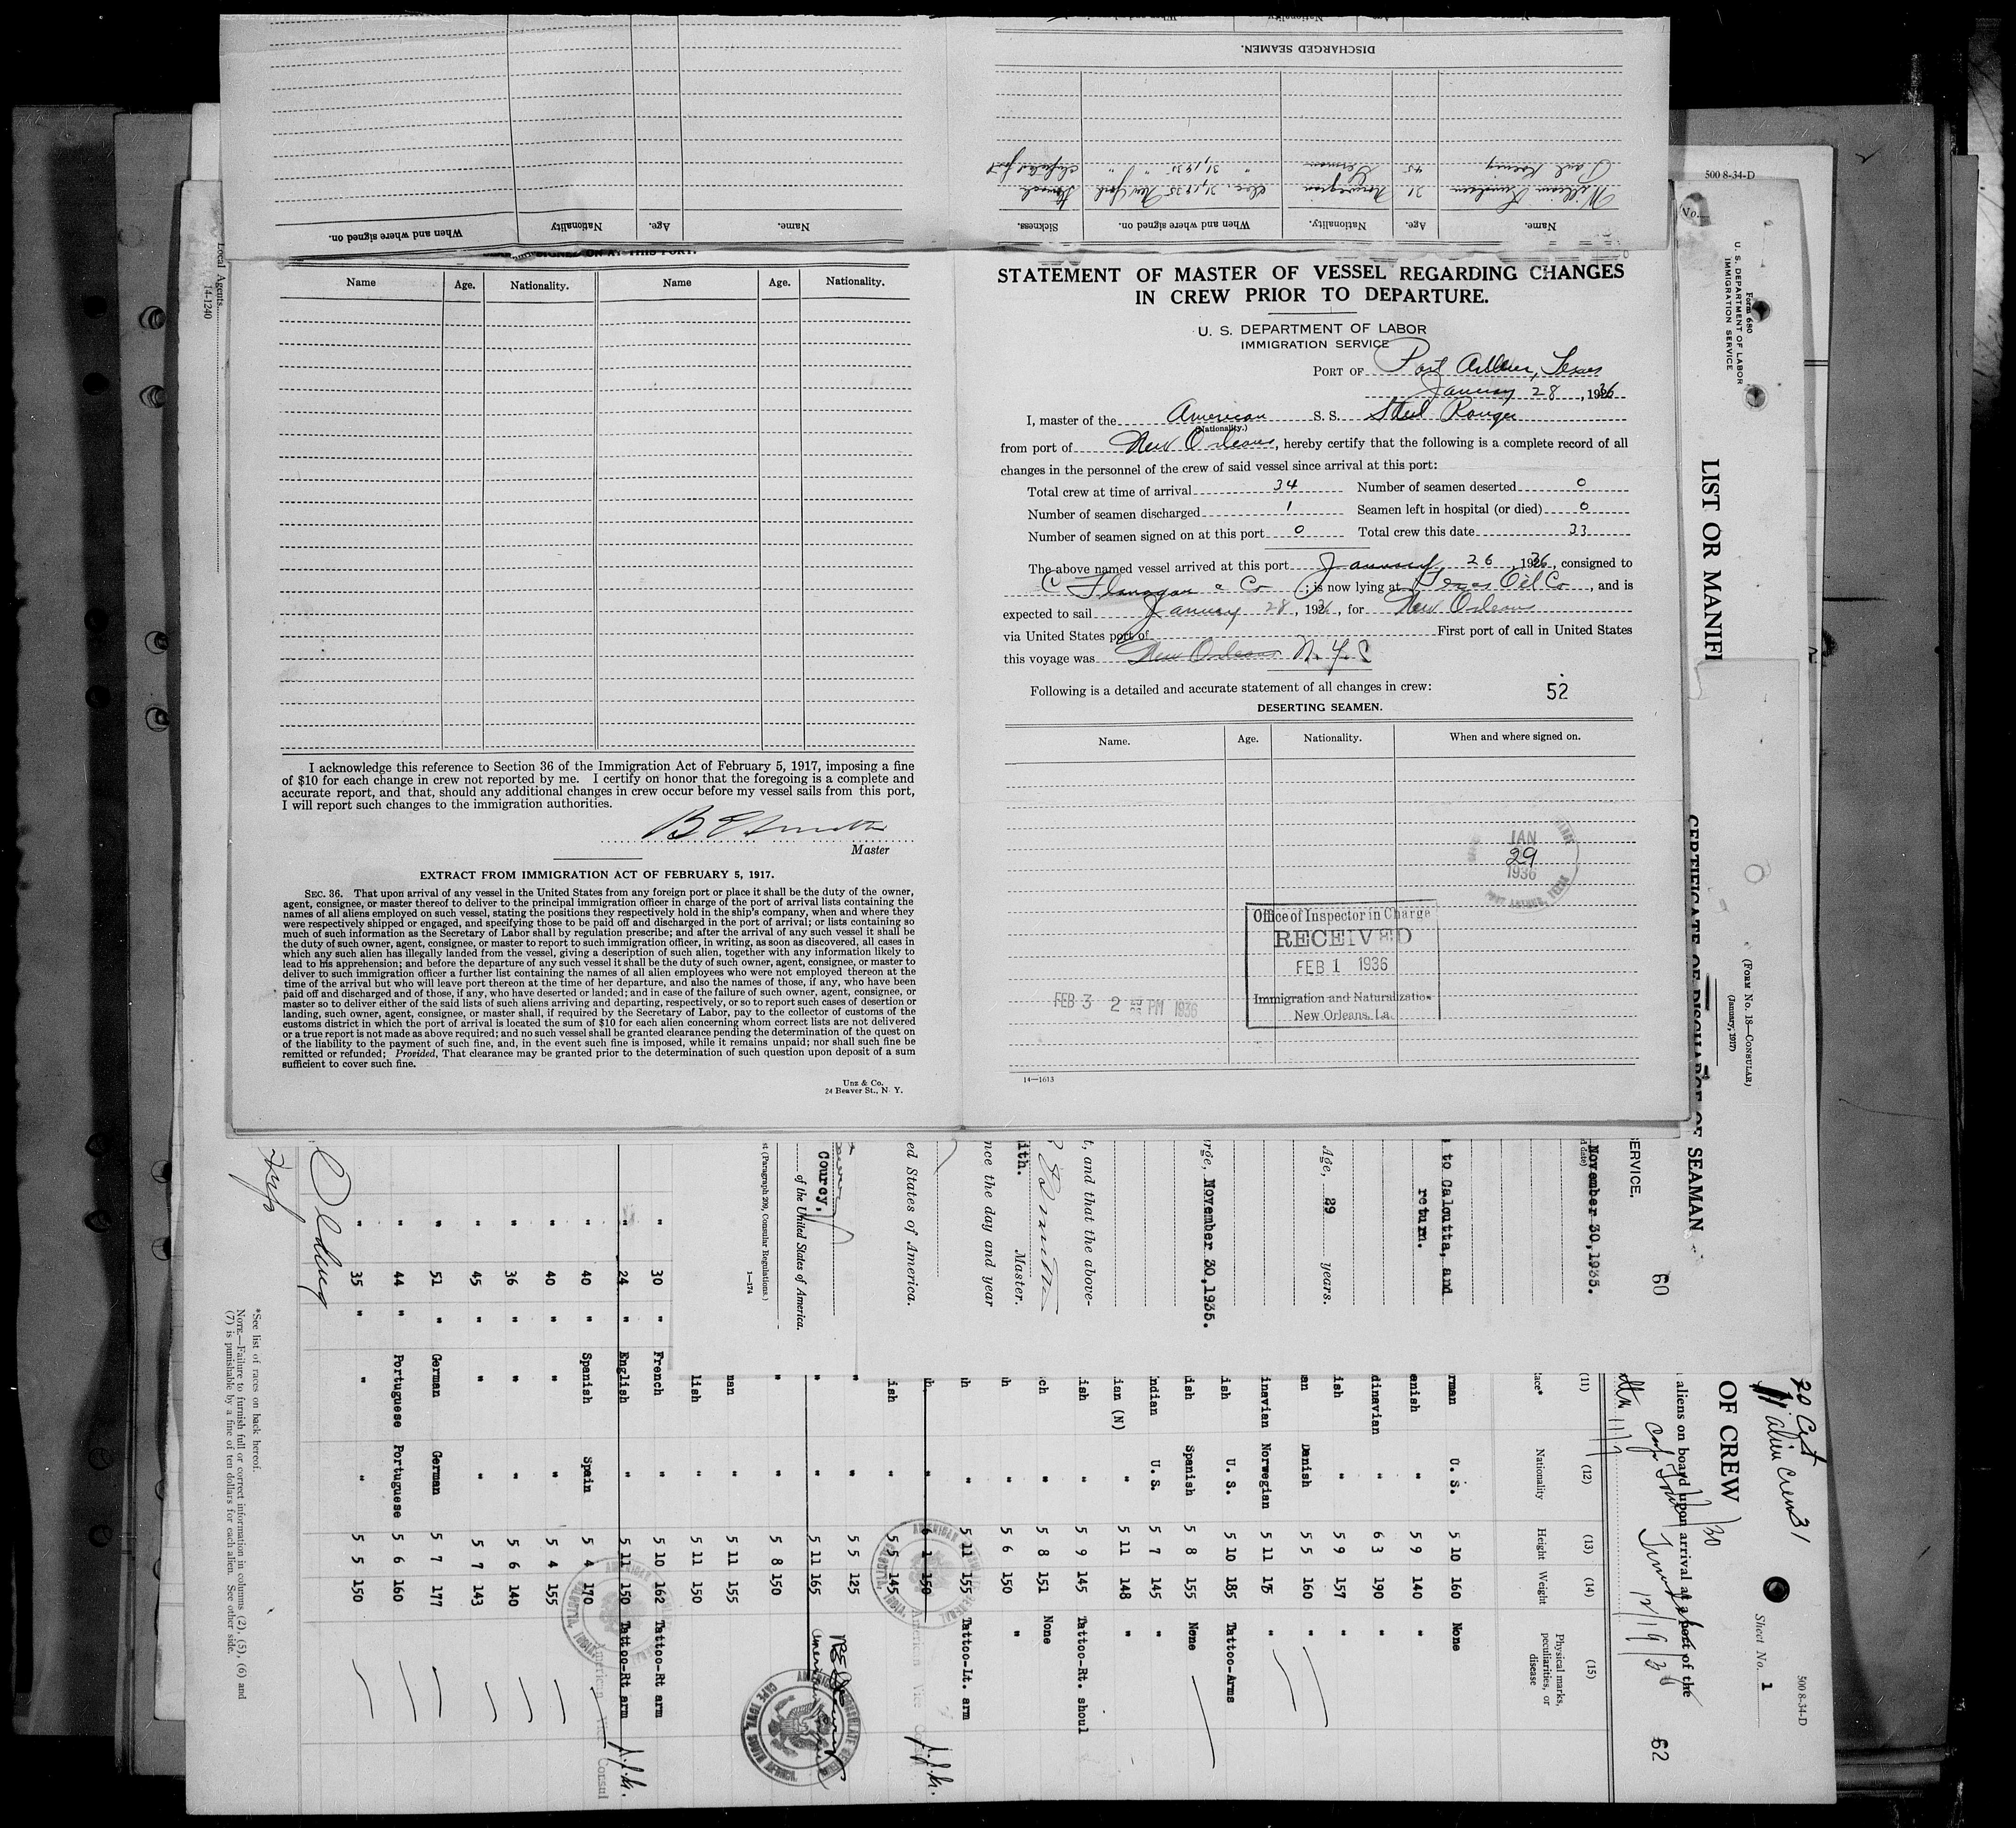 DISCHARGED SEAMEN.
Name. Age. Nationality. When and where signed on. Sickness.
William 21 Norwegian Dec. 31, 1935 New York
Paul Koenig 45 German " 31, 1935 " "
Name. Age. Nationality When and where signed on.
Name Age. Nationality. Name Age. Nationality.
I acknowledge this reference to Section 36 of the Immigration Act of February 5, 1917, imposing a fine
of $10 for each change in crew not reported by me. I certify on honor that the foregoing is a complete and
accurate report, and that, should any additional changes in crew occur before my vessel sails from this port,
I will report such changes to the immigration authorities.
Master
EXTRACT FROM IMMIGRATION ACT OF FEBRUARY 5, 1917.
SEC. 36. That upon arrival of any vessel in the United States from any foreign port or place it shall be the duty of the owner,
agent, consignee, or master thereof to deliver to the principal immigration officer in charge of the port of arrival lists containing the
names of all aliens employed on such vessel, stating the positions they respectively hold in the ship's company, when and where they
were respectively shipped or engaged, and specifying those to be paid off and discharged in the port of arrival; or lists containing so
much of such information as the Secretary of Labor shall by regulation prescribe; and after the arrival of any such vessel it shall be
the duty of such owner, agent, consignee, or master to report to such immigration officer, in writing, as soon as discovered, all cases in
which any such alien has illegally landed from the vessel, giving a description of such alien, together with any information likely to
lead to his apprehension; and before the departure of any such vessel it shall be the duty of such owner, agent, consignee, or master to
deliver to such immigration officer a further list containing the names of all alien employees who were not employed thereon at the
time of the arrival but who will leave port thereon at the time of her departure, and also the names of those, if any, who have been
paid off and discharged and of those, if any, who have deserted or landed; and in case of the failure of such owner, agent, consignee, or
master so to deliver either of the said lists of such aliens arriving and departing, respectively, or so to report such cases of desertion or
landing, such owner, agent, consignee, or master shall, if required by the Secretary of Labor, pay to the collector of customs of the
customs district in which the port of arrival is located the sum of $10 for each alien concerning whom correct lists are not delivered
or a true report is not made as above required; and no such vessel shall be granted clearance pending the determination of the quest on
of the liability to the payment of such fine, and, in the event such fine is imposed, while it remains unpaid; nor shall such fine be
remitted or refunded; Provided, That clearance may be granted prior to the determination of such question upon deposit of a sum
sufficient to cover such fine.
Unz & Co.
24 Beaver St., N. Y.
STATEMENT OF MASTER OF VESSEL REGARDING CHANGES
IN CREW PRIOR TO DEPARTURE.
U. S. DEPARTMENT OF LABOR
IMMIGRATION SERVICE
PORT OF Port Arthur, Texas
January 28, 1936
I, master of the American S. S. Steel Ranger
(Nationality.)
from port of New Orleans, hereby certify that the following is a complete record of all
changes in the personnel of the crew of said vessel since arrival at this port:
Total crew at time of arrival 34 Number of seamen deserted 0
Number of seamen discharged 1 Seamen left in hospital (or died) 0
Number of seamen signed on at this port 0 Total crew this date 33
The above named vessel arrived at this port January 26, 1936, consigned to
C Flanagan & Co; is now lying at Texas Oil Co, and is
expected to sail January 28, 1936, for New Orleans
via United States port of First port of call in United States
this voyage was New Orleans N. Y. C
Following is a detailed and accurate statement of all changes in crew: 52
DESERTING SEAMEN.
Name. Age. Nationality. When and where signed on.
JAN
29
1936
Office of Inspector in Charge
RECEIVED
FEB 1 1936
Immigration and Naturalization
New Orleans, La.
FEB 3 2 PM 1936
14—1613
500 8-34-D
No.
Form 680
U. S. DEPARTMENT OF LABOR
IMMIGRATION SERVICE
LIST OR MANIFE
(Form No. 18—CONSULAR)
(January, 1917)
CERTIFICATE OF DISCHARGE OF SEAMAN
SERVICE.
60
November 30, 1935.
to Calcutta, and
return.
Age, 29 years.
rge, November 30, 1935.
t, and that the above-
ith.
Master.
nce the day and year
ed States of America.
Courcy,
of the United States of America.
st (Paragraph 209, Consular Regulations.)
1—174
Local Agents
14-1240
20 Cft
11 alien crew 31
500 8-34-D
Sheet No. 1
OF CREW
aliens on board upon arrival at a port of the
62
(11) (12) (13) (14) (15)
Race* Nationality Height Weight Physical marks, peculiarities, or disease
rman U. S. 5 10 160 None
anish " 5 9 140 "
dinavian " 6 3 190 "
ish " 5 9 157 "
an Danish 5 5 160 "
inavian Norwegian 5 11 175 "
ish U. S. 5 10 185 Tattoo-Arms
ish Spanish 5 8 155 None
ndian U. S. 5 7 145 "
ian (N) " 5 11 148 "
ish " 5 9 145 Tattoo-Rt. shoul
ch " 5 8 151 None
h " 5 6 150 "
sh " 5 11 155 Tattoo-Lt. arm
h " 6 1 150
ish " 5 5 145
" " 5 5 125
" " 5 11 165
" " 5 8 150
man " 5 11 155
lish " 5 11 150
" 30 " French " 5 10 162 Tattoo-Rt arm
" 24 " English " 5 11 150 Tattoo-Rt arm
" 40 " Spanish Spain 5 4 170
" 40 " " " 5 4 155
" 36 " " " 5 6 140
" 45 " " " 5 7 143
" 51 " German German 5 7 177
" 44 " Portuguese Portuguese 5 6 160
" 35 " " " 5 5 150
*See list of races on back hereof.
NOTE.—Failure to furnish full or correct information in columns (2), (5), (6) and
(7) is punishable by a fine of ten dollars for each alien. See other side.